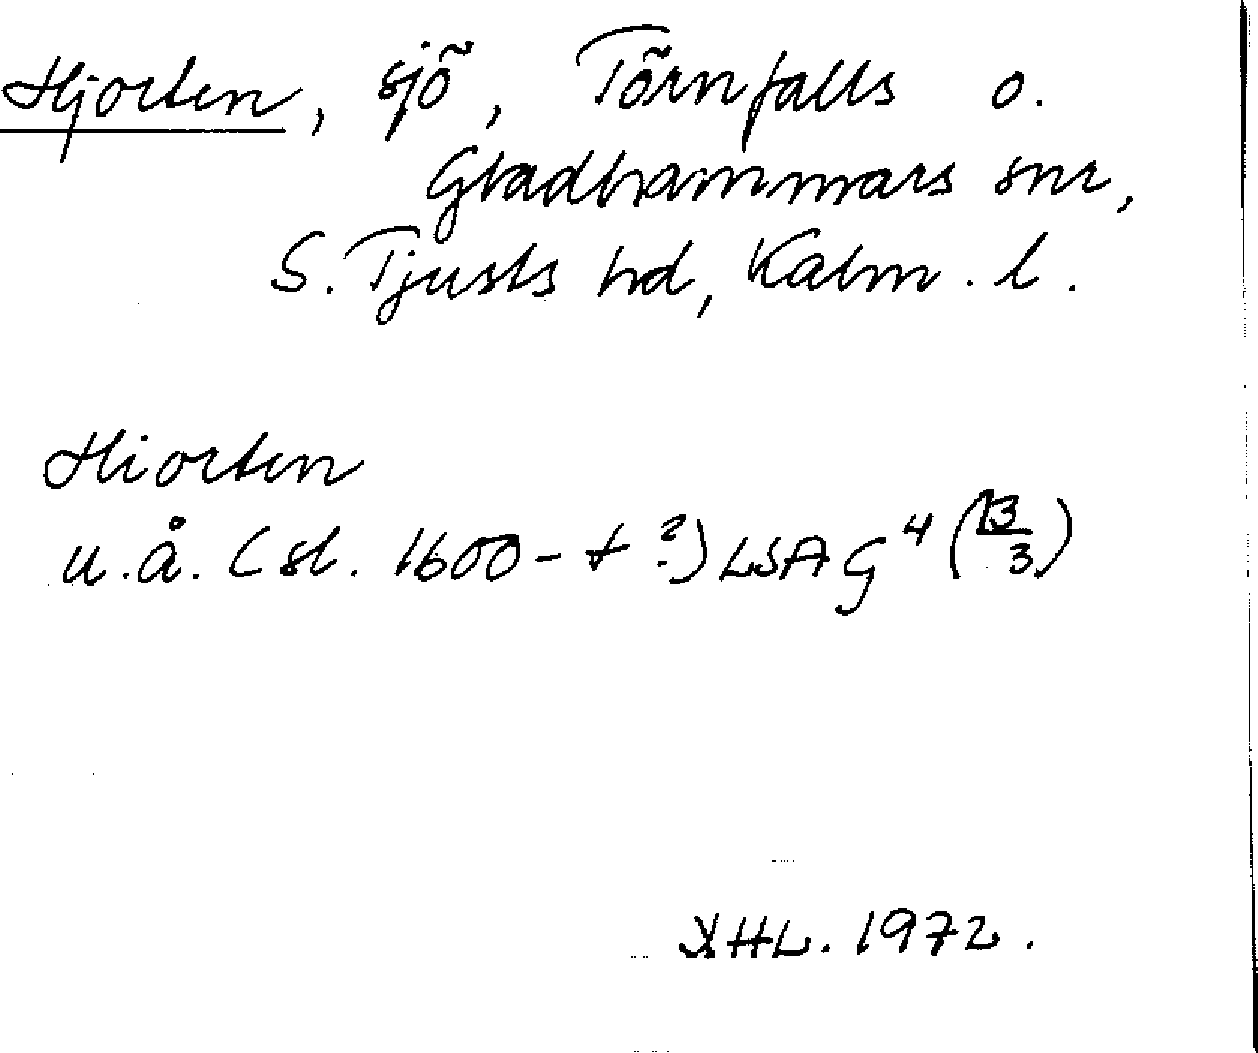 Hjorten, sjö, Törnfalls o.
Gladhammars snr,
S. Tjusts hd, Kalm. l.
Hiorten
u.å. (sl. 1600-t ?) LSA G⁴ (13/3)
1972.